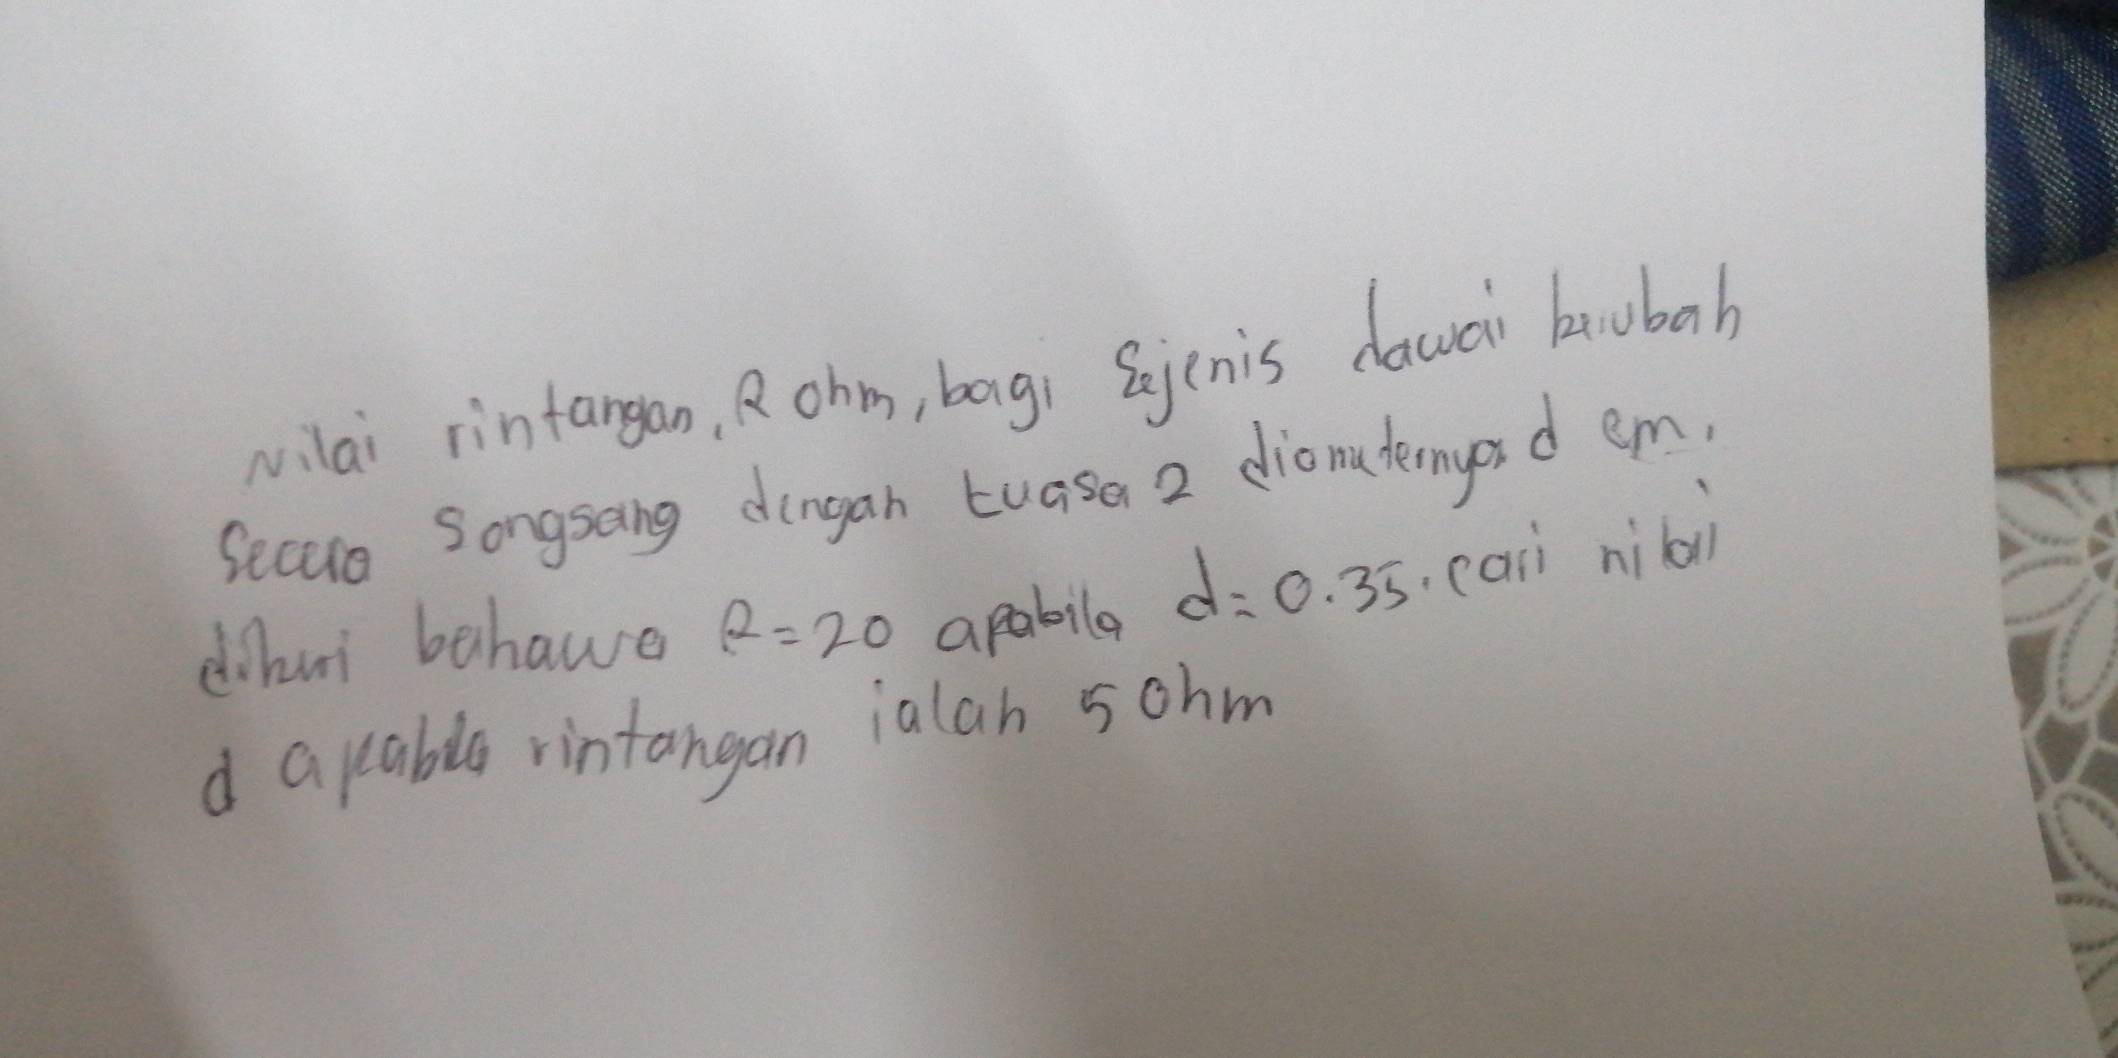 Nilai rintangan, R ohm, bagi sejenis dawai berubah
Secara Songsang dengan kuasa 2 diameternya d cm.
diberi bahawa R=20 apabila d=0.35. cari nilai
d apabila rintangan ialah 5 ohm